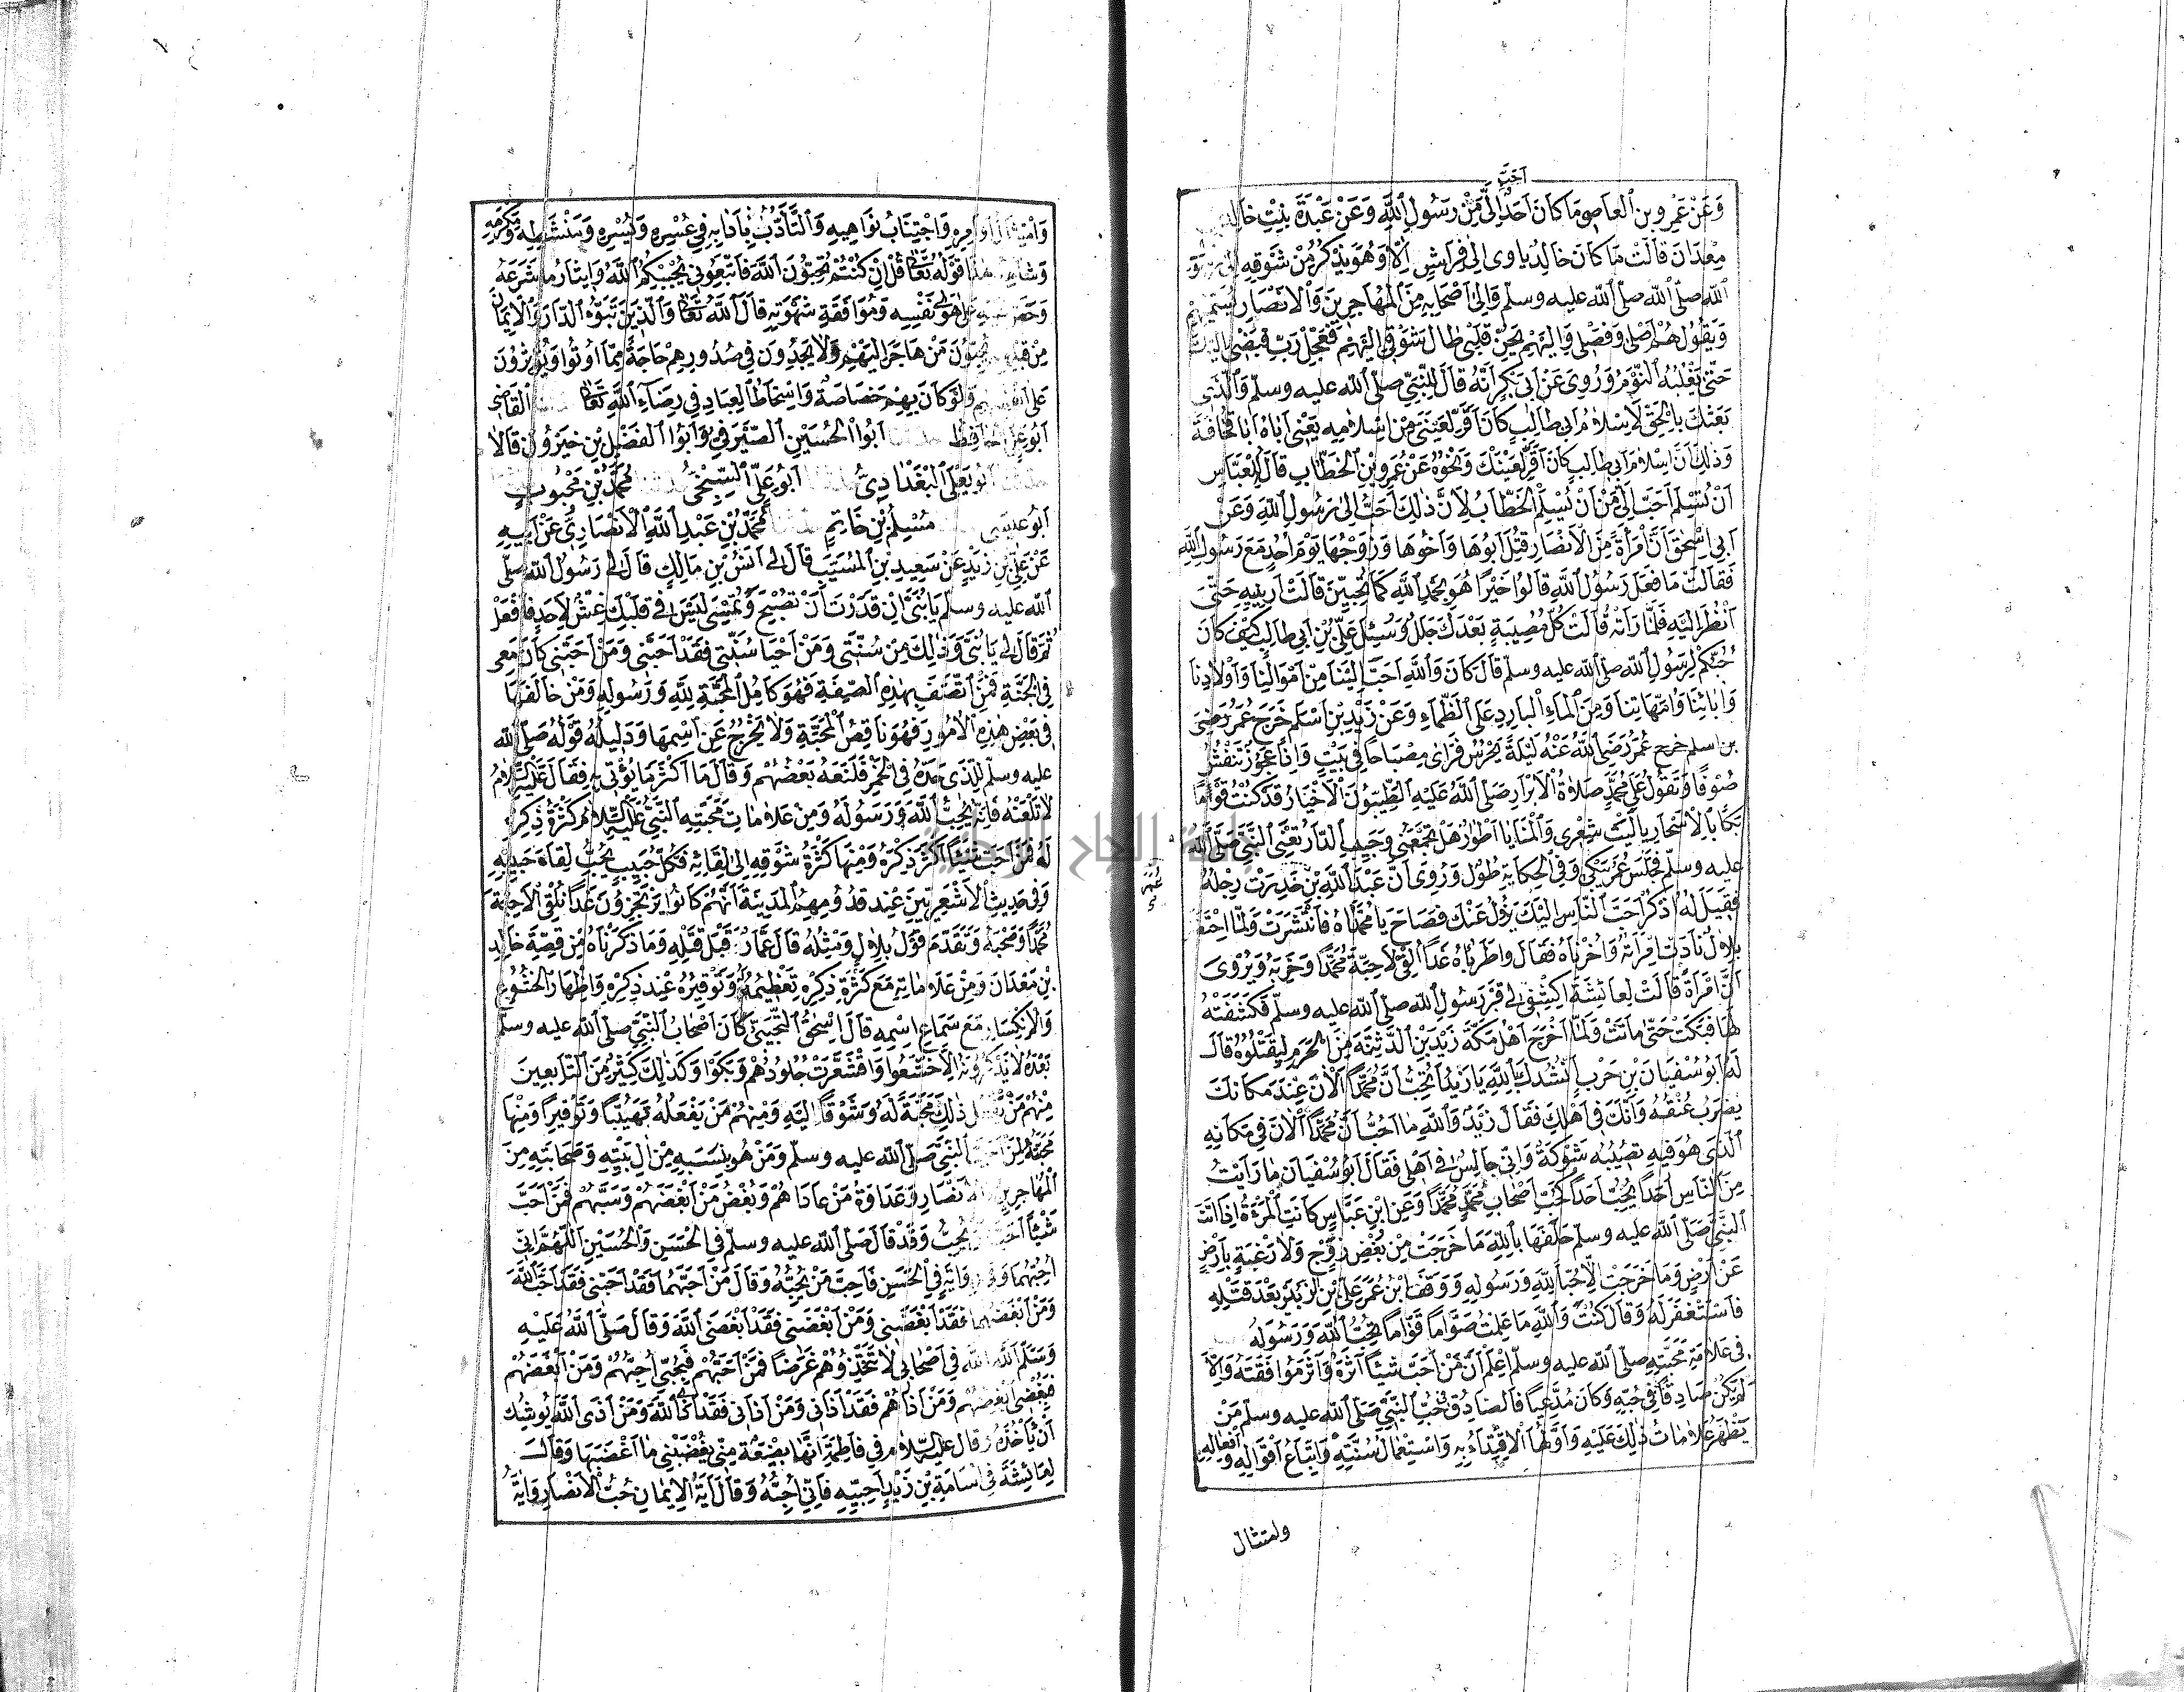 أحبّ
وَعَنْ عَمْرِو بنِ العَاصِ مَا كَانَ أَحَدٌ إِلَيَّ مِنْ رَسُولِ اللَّهِ وَعَنْ عَبْدَةَ بِنْتِ خَالِد
مِعْدَانَ قَالَتْ مَا كَانَ خَالِدٌ يَاوِى إِلَى فِرَاشٍ إِلَّا وَهُوَ يَذْكُرُ مِنْ شَوْقِهِ إِلَى
اللّه صلّى اللّه عليه وسلّم وَإِلَى أَصْحَابِهِ مِنَ الْمُهَاجِرِينَ وَالأَنْصَارِ يُسَمِّيهِمْ
وَيَقُولُ هُمْ أَصْلِي وَفَصْلِي وَإِلَيْهِمْ يَحِنُّ قَلْبِي طَالَ شَوْقِي إِلَيْهِمْ فَعَجِّلْ رَبِّ قَبْضِي إِلَيْكَ
حَتَّى يَغْلِبَهُ النَّوْمُ وَرُوِى عَنْ أَبِي بَكْرٍ أَنَّهُ قَالَ لِلنَّبِيِّ صلّى اللّه عليه وسلّم وَالَّذِي
بَعَثَكَ بِالْحَقِّ لَإِسْلَامُ أَبِي طَالِبٍ كَانَ أَقَرَّ لِعَيْنِي مِنْ إِسْلَامِهِ يَعْنِي أَبَاهُ أَبَا قُحَافَةَ
وَذَلِكَ أَنَّ إِسْلَامَ أَبِي طَالِبٍ كَانَ أَقَرَّ لِعَيْنِكَ وَنَحْوُهُ عَنْ عُمَرَ بْنِ الْخَطَّابِ قَالَ لِلْعَبَّاسِ
أَنْ تُسْلِمَ أَحَبُّ إِلَيَّ مِنْ أَنْ يُسْلِمَ الْخَطَّابُ لِأَنَّ ذَلِكَ أَحَبُّ إِلَى رَسُولِ اللَّهِ وَعَنْ
أَبِي إِسْحَقَ أَنَّ امْرَأَةً مِنَ الْأَنْصَارِ قُتِلَ أَبُوهَا وَأَخُوهَا وَزَوْجُهَا يَوْمَ أُحُدٍ مَعَ رَسُولِ اللَّهِ
فَقَالَتْ مَا فَعَلَ رَسُولُ اللَّهِ قَالُوا خَيْرًا هُوَ بِحَمْدِ اللَّهِ كَمَا تُحِبِّينَ قَالَتْ أَرِنِيهِ حَتَّى
أَنْظُرَ إِلَيْهِ فَلَمَّا رَأَتْهُ قَالَتْ كُلُّ مُصِيبَةٍ بَعْدَكَ جَلَلٌ وَسُئِلَ عَلِيُّ بْنُ أَبِي طَالِبٍ كَيْفَ كَانَ
حُبُّكُمْ لِرَسُولِ اللّه صلى اللّه عليه وسلّم قَالَ كَانَ وَاللَّهِ أَحَبَّ إِلَيْنَا مِنْ أَمْوَالِنَا وَأَوْلَادِنَا
وَآبَائِنَا وَأُمَّهَاتِنَا وَمِنَ الْمَاءِ الْبَارِدِ عَلَى الظَّمَاءِ وَعَنْ زَيْدِ بْنِ أَسْلَمَ خَرَجَ عُمَرُ رَضِيَ
بن اسلم خرج عُمَرُ رَضِيَ اللَّهُ عَنْهُ لَيْلَةً يَحْرُسُ فَرَأَى مِصْبَاحًا فِي بَيْتٍ وَإِذَا عَجُوزٌ تَنْفُشُ
صُوفًا وَتَقُولُ عَلَى مُحَمَّدٍ صَلَاةُ الْأَبْرَارِ صَلَّى اللَّهُ عَلَيْهِ الطَّيِّبُونَ الْأَخْيَارُ قَدْ كُنْتَ قَوَّامًا
بُكًا بِالْأَسْحَارِ يَالَيْتَ شِعْرِى وَالْمَنَايَا أَطْوَارُ هَلْ تَجْمَعُنِي وَحَبِيبِي الدَّارُ تَعْنِي النَّبِيَّ صَلَّى اللَّهُ
عليه وسلّم فَجَلَسَ عُمَرُ يَبْكِي وَفِي الْحِكَايَةِ طُولٌ وَرُوِىَ أَنَّ عَبْدَ اللَّهِ بْنَ خَدِرَتْ رِجْلُهُ
عُمَرَ
فَقِيلَ لَهُ اذْكُرْ أَحَبَّ النَّاسِ إِلَيْكَ يَزُلْ عَنْكَ فَصَاحَ يَا مُحَمَّدَاهْ فَانْتَشَرَتْ وَلَمَّا احْتَضَرَ
بِلَالٌ نَادَتِ امْرَأَتُهُ وَاحُزْنَاهُ فَقَالَ وَاطَرَبَاهُ غَدًا أَلْقَى الْأَحِبَّةَ مُحَمَّدًا وَحِزْبَهُ وَيُرْوَى
أَنَّ امْرَأَةً قَالَتْ لِعَائِشَةَ اكْشِفِي لِي قَبْرَ رَسُولِ اللّه صلّى اللّه عليه وسلّم فَكَشَفَتْهُ
لَهَا فَبَكَتْ حَتَّى مَاتَتْ وَلَمَّا أَخْرَجَ أَهْلُ مَكَّةَ زَيْدَ بْنَ الدَّثِنَةِ مِنَ الْحَرَمِ لِيَقْتُلُوهُ قَالَ
لَهُ أَبُو سُفْيَانَ بْنِ حَرْبٍ أَنْشُدُكَ بِاللَّهِ يَا زَيْدُ أَتُحِبُّ أَنَّ مُحَمَّدًا الْآنَ عِنْدَ مَكَانَكَ
يُضْرَبُ عُنُقُهُ وَأَنَّكَ فِي أَهْلِكَ فَقَالَ زَيْدٌ وَاللَّهِ مَا أُحِبُّ أَنَّ مُحَمَّدًا الْآنَ فِي مَكَانِهِ
الَّذِي هُوَ فِيهِ تُصِيبُهُ شَوْكَةٌ وَإِنِّي جَالِسٌ فِي أَهْلِي فَقَالَ أَبُو سُفْيَانَ مَا رَأَيْتُ
مِنَ النَّاسِ أَحَدًا يُحِبُّ أَحَدًا كَحُبِّ أَصْحَابِ مُحَمَّدٍ مُحَمَّدًا وَعَنِ ابْنِ عَبَّاسٍ كَانَتِ الْمَرْءَةُ إِذَا أَتَتِ
النَّبِيَّ صَلَّى اللّه عليه وسلّم حَلَّفَهَا بِاللَّهِ مَا خَرَجَتْ مِنْ بُغْضِ زَوْجٍ وَلَا رَغْبَةٍ بِأَرْضٍ
عَنْ أَرْضٍ وَمَا خَرَجَتْ إِلَّا حُبًّا لِلَّهِ وَرَسُولِهِ وَوَقَفَ ابْنُ عُمَرَ عَلَى بْنِ الزُّبَيْرِ بَعْدَ قَتْلِهِ
فَاسْتَغْفَرَ لَهُ وَقَالَ كُنْتَ وَاللَّهِ مَا عَلِمْتُ صَوَّامًا قَوَّامًا تُحِبُّ اللَّهَ وَرَسُولَهُ
فِي عَلَامَةِ مَحَبَّتِهِ صلى اللّه عليه وسلّم اعْلَمْ أَنَّ مَنْ أَحَبَّ شَيْئًا آثَرَهُ وَآثَرَ مُوَافَقَتَهُ وَإِلَّا
لَمْ يَكُنْ صَادِقًا فِي حُبِّهِ وَكَانَ مُدَّعِيًا فَالصَّادِقُ فِي حُبِّ النَّبِيِّ صَلَّى اللّه عليه وسلّم مَنْ
يَظْهَرُ عَلَامَاتُ ذَلِكَ عَلَيْهِ وَأَوَّلُهَا الْاِقْتِدَاءُ بِهِ وَاسْتِعْمَالُ سُنَّتِهِ وَاتِّبَاعُ أَقْوَالِهِ وَأَفْعَالِهِ
وامتثال
وَامْتِثَالُ أَوَامِرِهِ وَاجْتِنَابُ نَوَاهِيهِ وَالتَّأَدُّبُ بِآدَابِهِ فِي عُسْرِهِ وَيُسْرِهِ وَمَنْشَطِهِ وَمَكْرَهِهِ
وَشَاهِدُ هَذَا قَوْلُهُ تَعَالَى قُلْ إِنْ كُنْتُمْ تُحِبُّونَ اللَّهَ فَاتَّبِعُونِي يُحْبِبْكُمُ اللَّهُ وَإِيثَارُ مَا شَرَعَهُ
وَحَضَّ عَلَيْهِ عَلَى هَوَى نَفْسِهِ وَمُوَافَقَةِ شَهْوَتِهِ قَالَ اللَّهُ تَعَالَى وَالَّذِينَ تَبَوَّءُوا الدَّارَ وَالْإِيمَانَ
مِنْ قَبْلِهِمْ يُحِبُّونَ مَنْ هَاجَرَ إِلَيْهِمْ وَلَا يَجِدُونَ فِي صُدُورِهِمْ حَاجَةً مِمَّا أُوتُوا وَيُؤْثِرُونَ
عَلَى أَنْفُسِهِمْ وَلَوْ كَانَ بِهِمْ خَصَاصَةٌ وَإِسْخَاطُ الْعِبَادِ فِي رِضَاءِ اللَّهِ تَعَالَى الْقَاضِي
أَبُو عَلِيٍّ الْحَافِظُ أَبُوا الْحُسَيْنِ الصَّيْرَفِيُّ وَأَبُوا الْفَضْلِ بْنِ خَيْرُونَ قَالَا
أَبُو يَعْلَى الْبَغْدَادِيُّ أَبُو عَلِيٍّ السِّنْجِيُّ مُحَمَّدُ بْنِ مَحْبُوبٍ
أَبُو عِيسَى مُسْلِمُ بْنِ حَاتِمٍ مُحَمَّدُ بْنِ عَبْدِ اللَّهِ الْأَنْصَارِيُّ عَنْ أَبِيهِ
عَنْ عَلِيِّ بْنِ زَيْدٍ عَنْ سَعِيدِ بْنِ الْمُسَيَّبِ قَالَ لِي أَنَسُ بْنِ مَالِكٍ قَالَ لِي رَسُولُ اللّه صلّى
اللّه عليه وسلّم يَا بُنَيَّ إِنْ قَدَرْتَ أَنْ تُصْبِحَ وَتُمْسِيَ لَيْسَ فِي قَلْبِكَ غِشٌّ لِأَحَدٍ فَافْعَلْ
ثُمَّ قَالَ لِي يَا بُنَيَّ وَذَلِكَ مِنْ سُنَّتِي وَمَنْ أَحْيَا سُنَّتِي فَقَدْ أَحَبَّنِي وَمَنْ أَحَبَّنِي كَانَ مَعِي
فِي الْجَنَّةِ فَمَنِ اتَّصَفَ بِهَذِهِ الصِّفَةِ فَهُوَ كَامِلُ الْمَحَبَّةِ لِلَّهِ وَرَسُولِهِ وَمَنْ خَالَفَهَا
فِي بَعْضِ هَذِهِ الْأُمُورِ فَهُوَ نَاقِصُ الْمَحَبَّةِ وَلَا يَخْرُجُ عَنِ اسْمِهَا وَدَلِيلُهُ قَوْلُهُ صَلَّى اللّه
عليه وسلّم لِلَّذِي حَدَّهُ فِي الْخَمْرِ فَلَعَنَهُ بَعْضُهُمْ وَقَالَ مَا أَكْثَرَ مَا يُؤْتَى بِهِ فَقَالَ عَلَيْهِ السَّلَامُ
لَا تَلْعَنْهُ فَإِنَّهُ يُحِبُّ اللَّهَ وَرَسُولَهُ وَمِنْ عَلَامَاتِ مَحَبَّتِهِ النَّبِيِّ عَلَيْهِ السَّلَامُ كَثْرَةُ ذِكْرِهِ
لَهُ فَمَنْ أَحَبَّ شَيْئًا أَكْثَرَ ذِكْرَهُ وَمِنْهَا كَثْرَةُ شَوْقِهِ إِلَى لِقَائِهِ فَكُلُّ حَبِيبٍ يُحِبُّ لِقَاءَ حَبِيبِهِ
وَفِي حَدِيثِ الْأَشْعَرِيِّينَ عِنْدَ قُدُومِهِمُ الْمَدِينَةَ أَنَّهُمْ كَانُوا يَرْتَجِزُونَ غَدًا نَلْقَى الْأَحِبَّةَ
مُحَمَّدًا وَصَحْبَهُ وَتَقَدَّمَ قَوْلُ بِلَالٍ وَمِثْلُهُ قَالَ عَمَّارٌ قَبْلَ قَتْلِهِ وَمَا ذَكَرْنَاهُ مِنْ قِصَّةِ خَالِدِ
بْنِ مَعْدَانَ وَمِنْ عَلَامَاتِهِ مَعَ كَثْرَةِ ذِكْرِهِ تَعْظِيمُهُ وَتَوْقِيرُهُ عِنْدَ ذِكْرِهِ وَإِظْهَارُ الْخُشُوعِ
وَالْاِنْكِسَارِ مَعَ سَمَاعِ اسْمِهِ قَالَ إِسْحَقُ التُّجِيبِيُّ كَانَ أَصْحَابُ النَّبِيِّ صلى اللّه عليه وسلّم
بَعْدَهُ لَا يَذْكُرُونَهُ إِلَّا خَشَعُوا وَاقْشَعَرَّتْ جُلُودُهُمْ وَبَكَوْا وَكَذَلِكَ كَثِيرٌ مِنَ التَّابِعِينَ
مِنْهُمْ مَنْ يَفْعَلُ ذَلِكَ مَحَبَّةً لَهُ وَشَوْقًا إِلَيْهِ وَمِنْهُمْ مَنْ يَفْعَلُهُ تَهَيُّبًا وَتَوْقِيرًا وَمِنْهَا
مَحَبَّتُهُ لِمَنْ أَحَبَّ النَّبِيَّ صَلَّى اللّه عليه وسلّم وَمَنْ هُوَ بِنَسَبِهِ مِنْ آلِ بَيْتِهِ وَصَحَابَتِهِ مِنَ
الْمُهَاجِرِينَ وَالْأَنْصَارِ وَعَدَاوَةُ مَنْ عَادَاهُمْ وَبُغْضُ مَنْ أَبْغَضَهُمْ وَسَبَّهُمْ فَمَنْ أَحَبَّ
شَيْئًا أَحَبَّ مَنْ يُحِبُّ وَقَدْ قَالَ صَلَّى اللّه عليه وسلّم فِي الْحَسَنِ وَالْحُسَيْنِ اللَّهُمَّ إِنِّي
أُحِبُّهُمَا وَفِي رِوَايَةٍ فِي الْحَسَنِ فَأَحِبَّ مَنْ يُحِبُّهُ وَقَالَ مَنْ أَحَبَّهُمَا فَقَدْ أَحَبَّنِي فَقَدْ أَحَبَّ اللَّهَ
وَمَنْ أَبْغَضَهُمَا فَقَدْ أَبْغَضَنِي وَمَنْ أَبْغَضَنِي فَقَدْ أَبْغَضَ اللَّهَ وَقَالَ صَلَّى اللَّهُ عَلَيْهِ
وَسَلَّمَ اللَّهَ اللَّهَ فِي أَصْحَابِي لَا تَتَّخِذُوهُمْ غَرَضًا فَمَنْ أَحَبَّهُمْ فَبِحُبِّي أَحَبَّهُمْ وَمَنْ أَبْغَضَهُمْ
فَبِبُغْضِي أَبْغَضَهُمْ وَمَنْ آذَاهُمْ فَقَدْ آذَانِي وَمَنْ آذَانِي فَقَدْ آذَى اللَّهَ وَمَنْ آذَى اللَّهَ يُوشِكُ
أَنْ يَأْخُذَهُ وَقَالَ عَلَيْهِ السَّلَامُ فِي فَاطِمَةَ إِنَّهَا بِضْعَةٌ مِنِّي يُغْضِبُنِي مَا أَغْضَبَهَا وَقَالَ
لِعَائِشَةَ فِي أُسَامَةَ بْنِ زَيْدٍ أَحِبِّيهِ فَإِنِّي أُحِبُّهُ وَقَالَ آيَةُ الْإِيمَانِ حُبُّ الْأَنْصَارِ وَآيَةُ